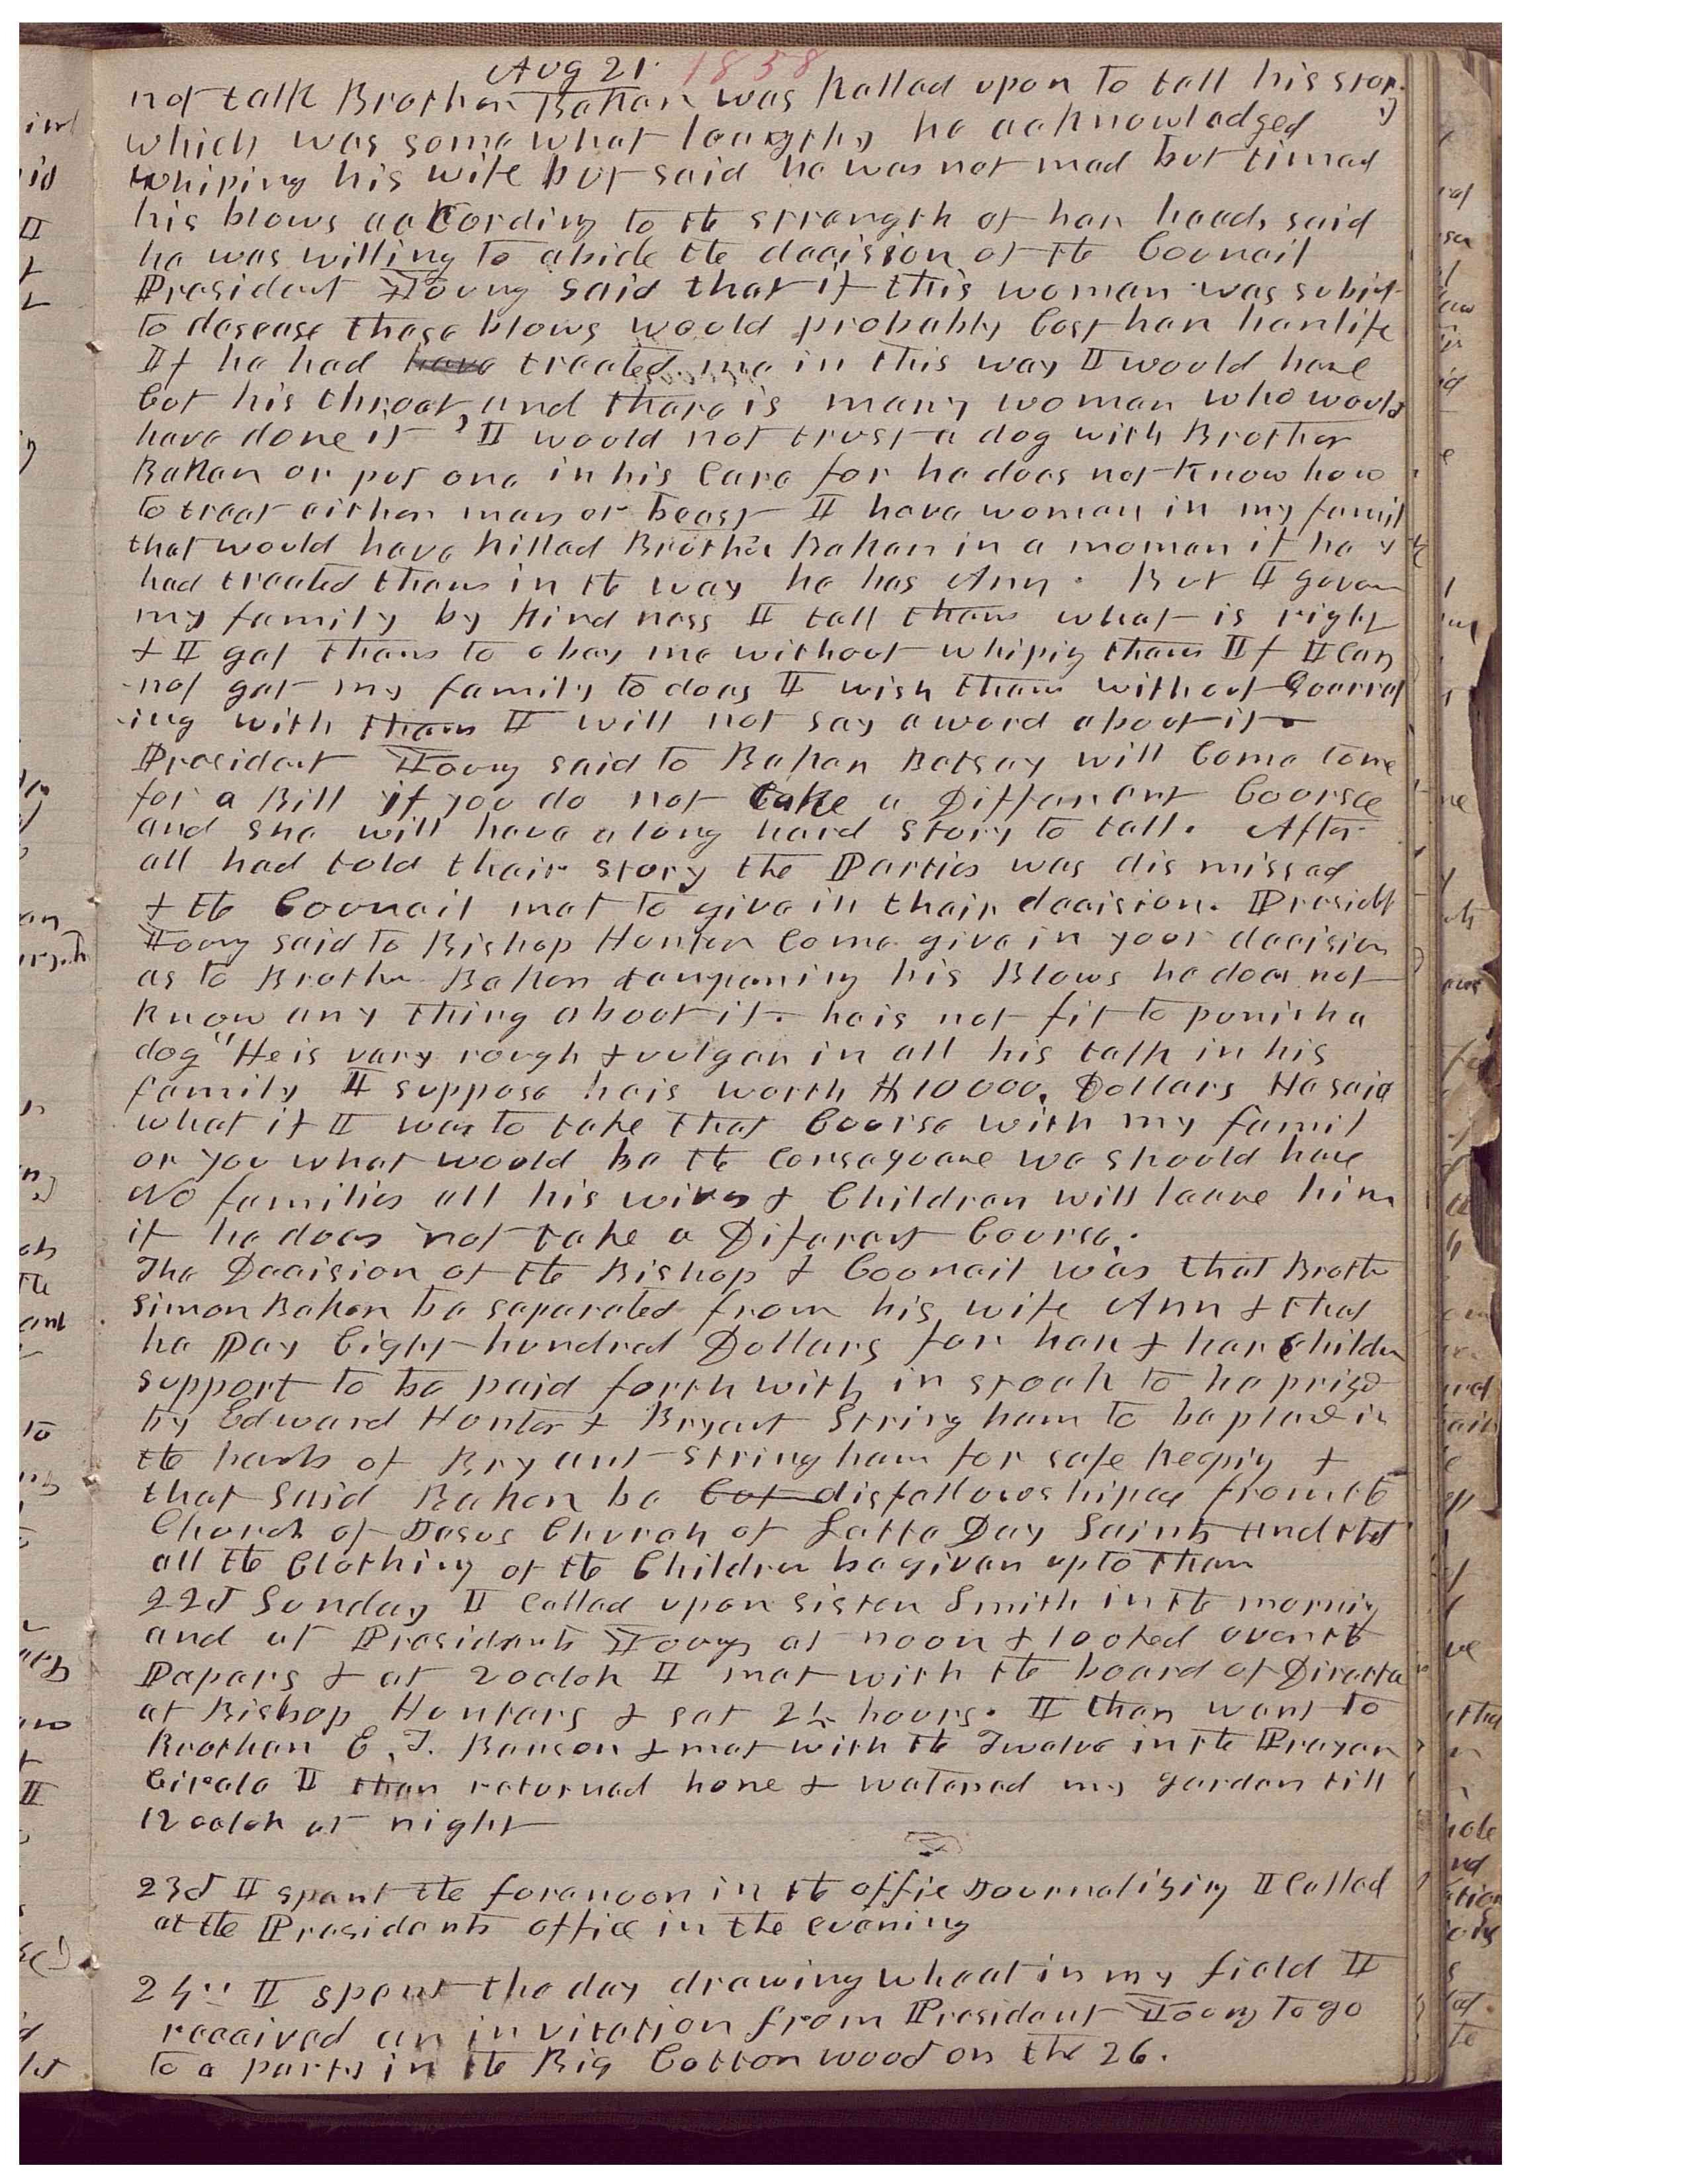 Aug 21. 1858
not talk Brother Baker was kalled upon to tell his story
which was somewhat leangthy he acknowledged
whiping his wife but said he was not mad but timed
his blows according to the strength of her head, said
he was willing to abide the decision of the Council
President Young said that if this woman was subject
to desease those blows would probably Cost her her life
If he had have treated me in this way I would have
Cut his throat, and there is many women who would
have done it I would not trust a dog with Brother
Baker or put one in his Care for he does not know how
to treat either man or beast I have women in my family
that would have killed Brother Baker in a moment if he
had treated them in the way he has Ann. But I govern
my family by kindness I tell them what is right
& I get them to obey me without whiping them If I Can
not get my family to do as I wish them without Quarrel
-ing with them I will not say a word about it
President Young said to Baker Betsey will Come to me
for a Bill if you do not take a Different Course
and she will have a long hard story to tell. After
all had told their story the Parties was dismissed
& the Council met to give in their decision. Presidet
Young said to Bishop Hunter Come give in your decision
as to Brother Baker tempering his Blows he does not
know any thing about it. he is not fit to punish a
dog" He is very rough & vulgar in all his talk in his
family I suppose he is worth $10000, Dollars He said
what if I was to take that Course with my famil
or you what would be the Consequence we should have
No families all his wives & Children will leave him
if he does not take a Diferant Course.
The Decision of the Bishop & Council was that Brother
Simon Baker be separated from his wife Ann & that
he Pay Eight hundred Dollars for her & her Children
support to be paid forthwith in stock to be prised
by Edward Hunter & Bryant Stringham to be placed in
the hands of Bryant Stringham for safe keepig &
that said Baker be Cut disfellowshiped from the
Church of Jesus Church of Latter Day Saints and that
all the Clothing of the Children be given up to them
22d Sunday I Called upon Sister Smith in the mornig
and at Presidents Youngs at noon & looked over the
Papers & at 2 oclok I met with the board of Directors
at Bishop Hunters & sat 2½ hours. I then went to
Brother E. T. Benson & met with the Twelve in the Prayer
Circle I then returned home & watered my garden till
12 oclok at night
23d I spent the forenoon in the offie Journalizing I Called
at the Presidents office in the evening
24th I spent the day drawing wheat in my field I
received an invitation from President Young to go
to a party in the Big Cottonwood on the 26.